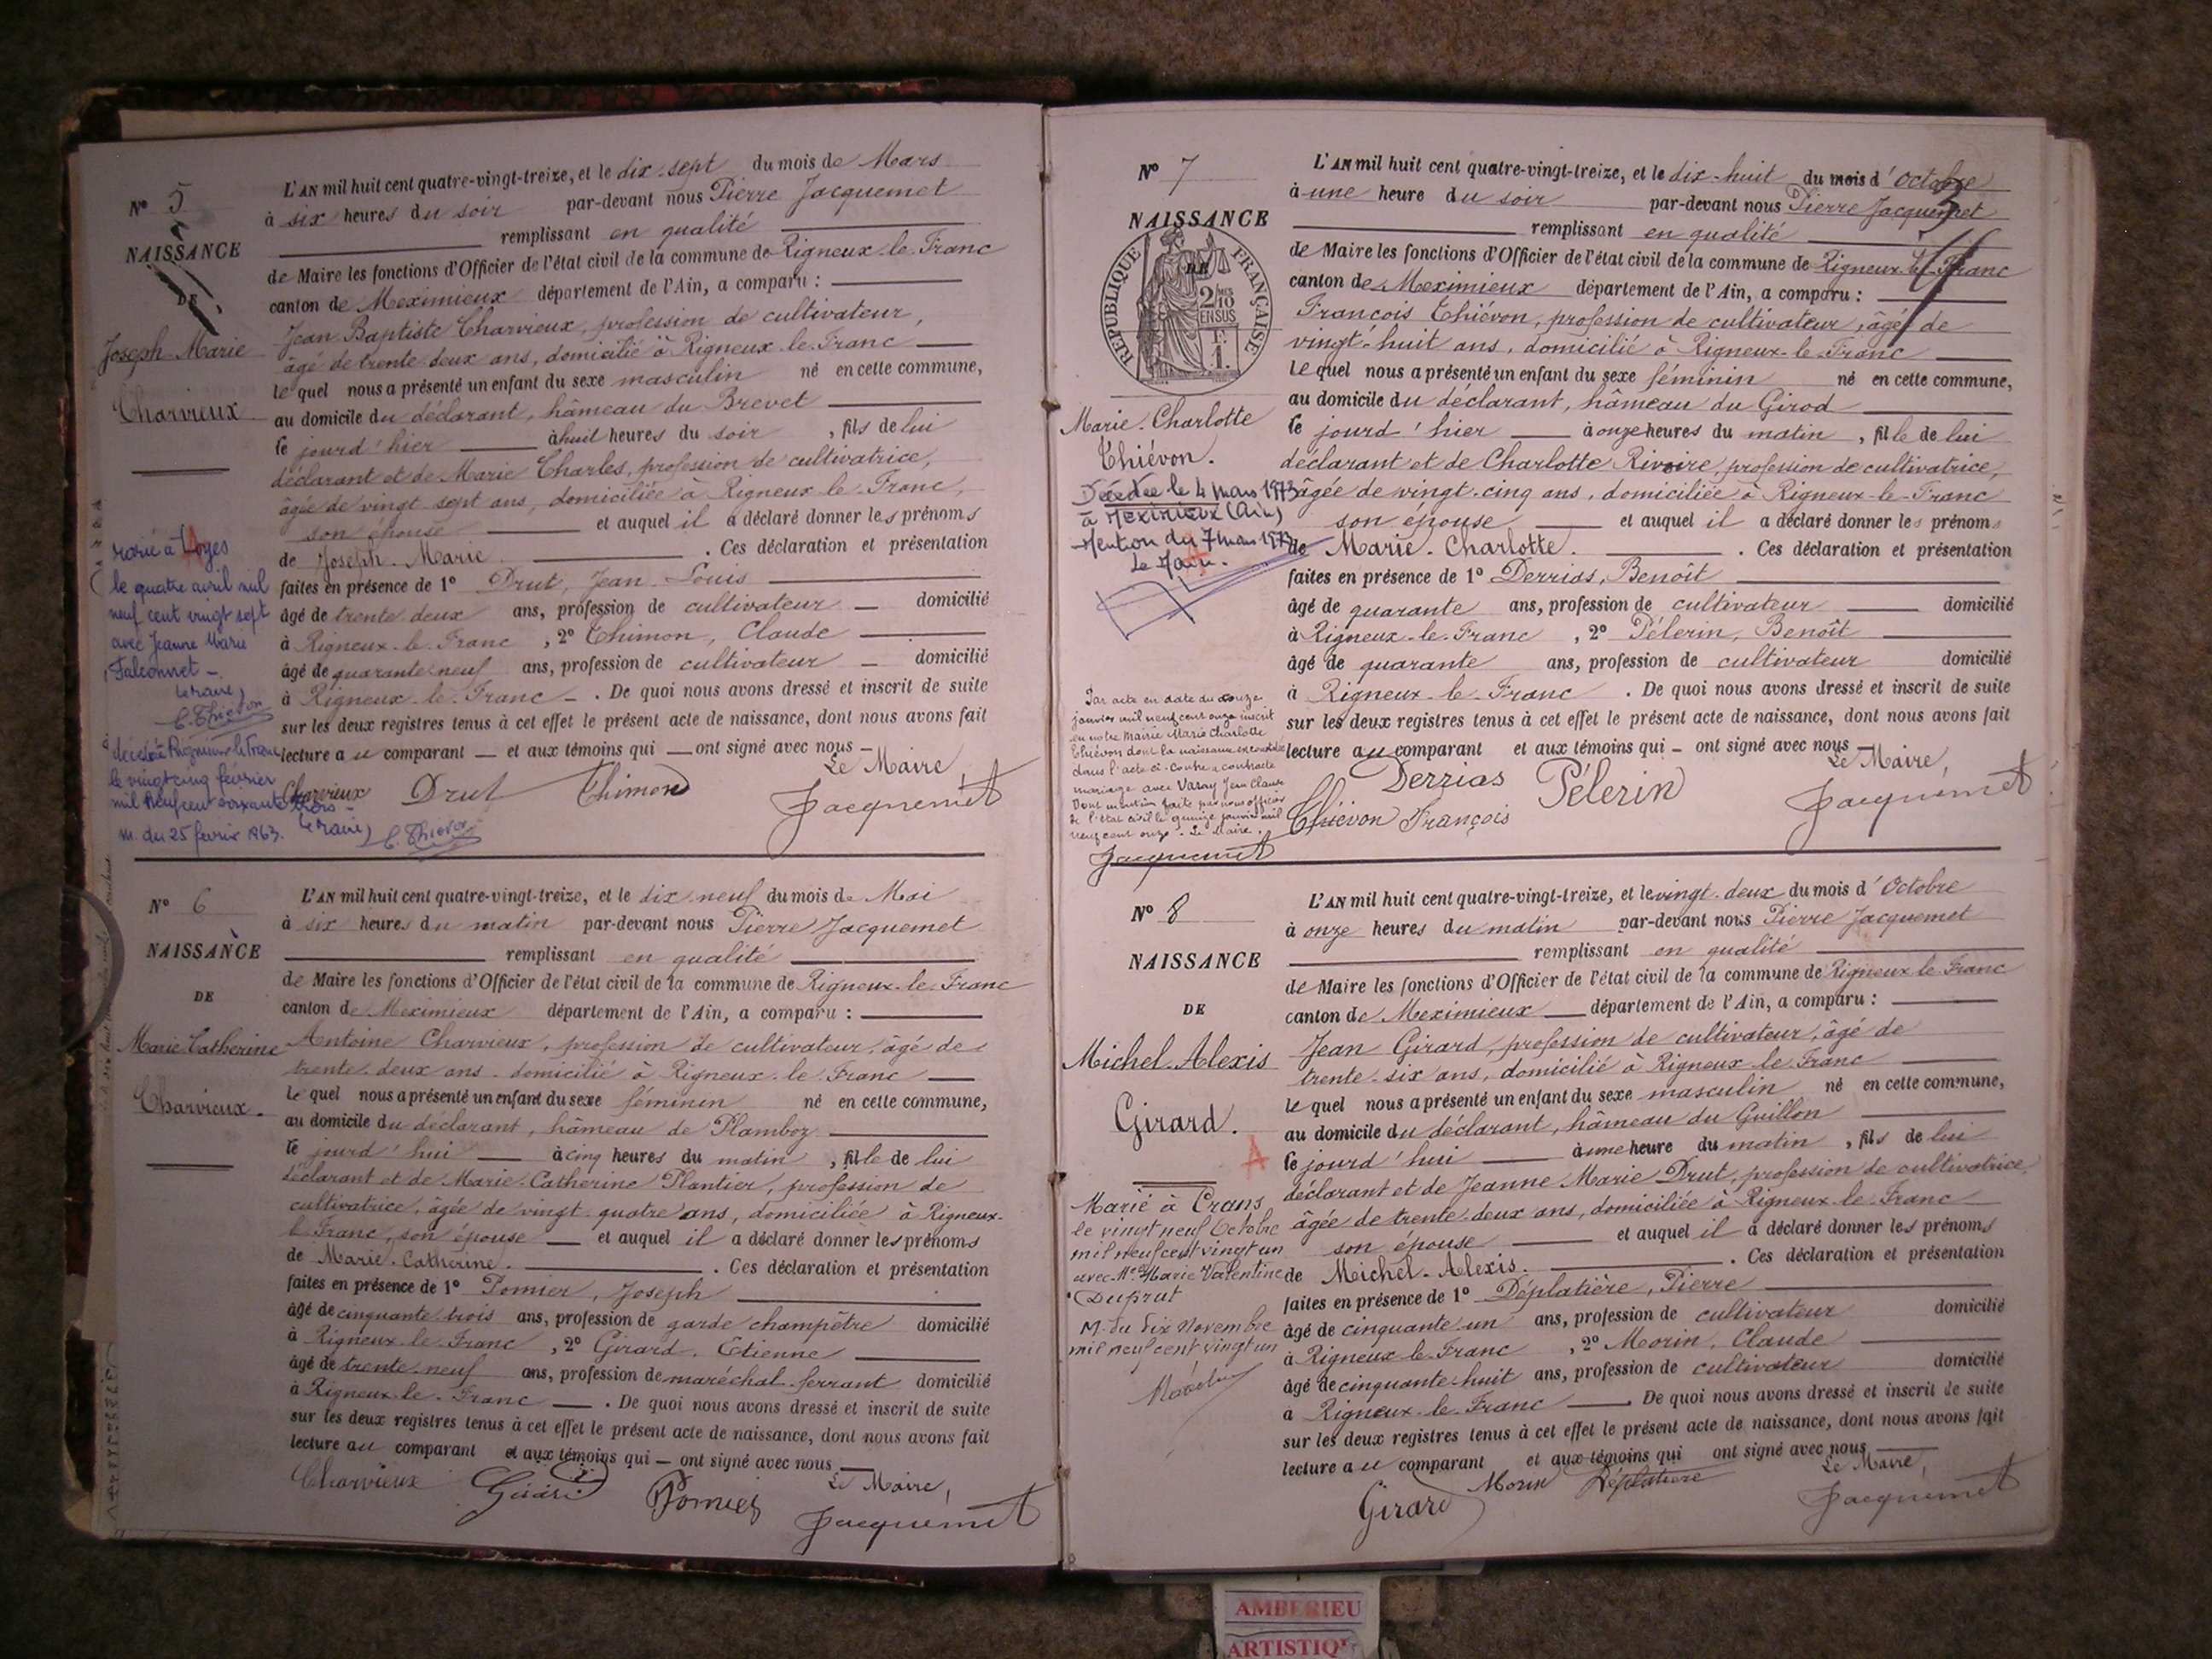 N° 5
NAISSANCE
DE
Joseph Marie
Charvieux
marié à Loyes
le quatre avril mil
neuf cent vingt sept
avec Jeanne Marie
Falconnet -
Le Maire,
C. Thiévon
décédé à Rigneux le Franc
le vingt cinq février
mil neuf cent soixante trois -
m. du 25 fevrier 1963. Le Maire,
C. Thiévon
L'AN mil huit cent quatre-vingt-treize, et le dix-sept du mois de Mars
à six heures du soir par-devant nous Pierre Jacquemet
remplissant en qualité
de Maire les fonctions d'Officier de l'état civil de la commune de Rigneux-le-Franc
canton de Meximieux département de l'Ain, a comparu :
Jean Baptiste Charvieux, profession de cultivateur,
âgé de trente deux ans, domicilié à Rigneux-le-Franc
lequel nous a présenté un enfant du sexe masculin né en cette commune,
au domicile du déclarant, hâmeau du Brevet
le jourd'hier à huit heures du soir, fils de lui
déclarant et de Marie Charles, profession de cultivatrice,
âgée de vingt sept ans, domiciliée à Rigneux-le-Franc,
son épouse et auquel il a déclaré donner les prénoms
de Joseph-Marie . Ces déclaration et présentation
faites en présence de 1° Drut, Jean Louis
âgé de trente deux ans, profession de cultivateur domicilié
à Rigneux-le-Franc , 2° Thimon, Claude
âgé de quarante-neuf ans, profession de cultivateur domicilié
à Rigneux-le-Franc . De quoi nous avons dressé et inscrit de suite
sur les deux registres tenus à cet effet le présent acte de naissance, dont nous avons fait
lecture au comparant et aux témoins qui ont signé avec nous
Le Maire,
Charvieux Drut Thimon Jacquemet
N° 6
NAISSANCE
DE
Marie Catherine
Charvieux.
L'AN mil huit cent quatre-vingt-treize, et le dix neuf du mois de Mai
à six heures du matin par-devant nous Pierre Jacquemet
remplissant en qualité
de Maire les fonctions d'Officier de l'état civil de la commune de Rigneux-le-Franc
canton de Meximieux département de l'Ain, a comparu :
Antoine Charvieux, profession de cultivateur, âgé de
trente-deux ans domicilié à Rigneux-le-Franc
lequel nous a présenté un enfant du sexe féminin né en cette commune,
au domicile du déclarant, hâmeau de Plamboz
le jourd'hui à cinq heures du matin, fille de lui
déclarant et de Marie-Catherine Plantier, profession de
cultivatrice, âgée de vingt-quatre ans, domiciliée à Rigneux-
le-Franc, son épouse et auquel il a déclaré donner les prénoms
de Marie-Catherine. . Ces déclaration et présentation
faites en présence de 1° Pomier, Joseph
âgé de cinquante trois ans, profession de garde champêtre domicilié
à Rigneux-le-Franc , 2° Girard, Etienne
âgé de trente-neuf ans, profession de maréchal-ferrant domicilié
à Rigneux-le-Franc . De quoi nous avons dressé et inscrit de suite
sur les deux registres tenus à cet effet le présent acte de naissance, dont nous avons fait
lecture au comparant et aux témoins qui ont signé avec nous
Le Maire,
Charvieux Girard Pomier Jacquemet
N° 7
NAISSANCE
DE
REPUBLIQUE FRANÇAISE
2/10 EN SUS
1 F.
Marie-Charlotte
Thiévon.
Décédée le 4 mars 1973
à Meximieux (Ain)
Mention du 7 mars 1973
Le Maire.
Par acte en date du douze
janvier mil neuf cent onze inscrit
en notre Mairie Marie Charlotte
Thiévon dont la naissance est constatée
dans l'acte ci-contre a contracté
mariage avec Varay Jean Claude
Dont mention faite par nous officier
de l'état civil le quinze janvier mil
neuf cent onze. Le Maire.
Jacquemet
L'AN mil huit cent quatre-vingt-treize, et le dix-huit du mois d'Octobre
à une heure du soir par-devant nous Pierre Jacquemet
remplissant en qualité
de Maire les fonctions d'Officier de l'état civil de la commune de Rigneux-le-Franc
canton de Meximieux département de l'Ain, a comparu :
François Thiévon, profession de cultivateur, âgé de
vingt-huit ans, domicilié à Rigneux-le-Franc
lequel nous a présenté un enfant du sexe féminin né en cette commune,
au domicile du déclarant, hâmeau du Girod
le jourd'hier à onze heures du matin, fille de lui
déclarant et de Charlotte Rivoire, profession de cultivatrice,
âgée de vingt-cinq ans, domiciliée à Rigneux-le-Franc
son épouse et auquel il a déclaré donner les prénoms
de Marie-Charlotte. . Ces déclaration et présentation
faites en présence de 1° Derrias, Benoît
âgé de quarante ans, profession de cultivateur domicilié
à Rigneux-le-Franc , 2° Pélerin, Benoît
âgé de quarante ans, profession de cultivateur domicilié
à Rigneux-le-Franc . De quoi nous avons dressé et inscrit de suite
sur les deux registres tenus à cet effet le présent acte de naissance, dont nous avons fait
lecture au comparant et aux témoins qui ont signé avec nous
Le Maire,
Derrias Pélerin
Thiévon François Jacquemet
N° 8
NAISSANCE
DE
Michel-Alexis
Girard.
Marié à Crans
le vingt neuf Octobre
mil neuf cent vingt un
avec Mlle Marie Valentine
Duprut
M. du dix Novembre
mil neuf cent vingt un
L'AN mil huit cent quatre-vingt-treize, et le vingt-deux du mois d'Octobre
à onze heures du matin par-devant nous Pierre Jacquemet
remplissant en qualité
de Maire les fonctions d'Officier de l'état civil de la commune de Rigneux-le-Franc
canton de Meximieux département de l'Ain, a comparu :
Jean Girard, profession de cultivateur, âgé de
trente-six ans, domicilié à Rigneux-le-Franc
lequel nous a présenté un enfant du sexe masculin né en cette commune,
au domicile du déclarant, hâmeau du Guillon
le jourd'hui à une heure du matin, fils de lui
déclarant et de Jeanne Marie Drut, profession de cultivatrice,
âgée de trente-deux ans, domiciliée à Rigneux-le-Franc
son épouse et auquel il a déclaré donner les prénoms
de Michel-Alexis. . Ces déclaration et présentation
faites en présence de 1° Déplatière, Pierre
âgé de cinquante un ans, profession de cultivateur domicilié
à Rigneux-le-Franc , 2° Morin, Claude
âgé de cinquante-huit ans, profession de cultivateur domicilié
à Rigneux-le-Franc . De quoi nous avons dressé et inscrit de suite
sur les deux registres tenus à cet effet le présent acte de naissance, dont nous avons fait
lecture au comparant et aux témoins qui ont signé avec nous
Le Maire,
Girard Morin Déplatière Jacquemet
AMBERIEU
ARTISTIQU